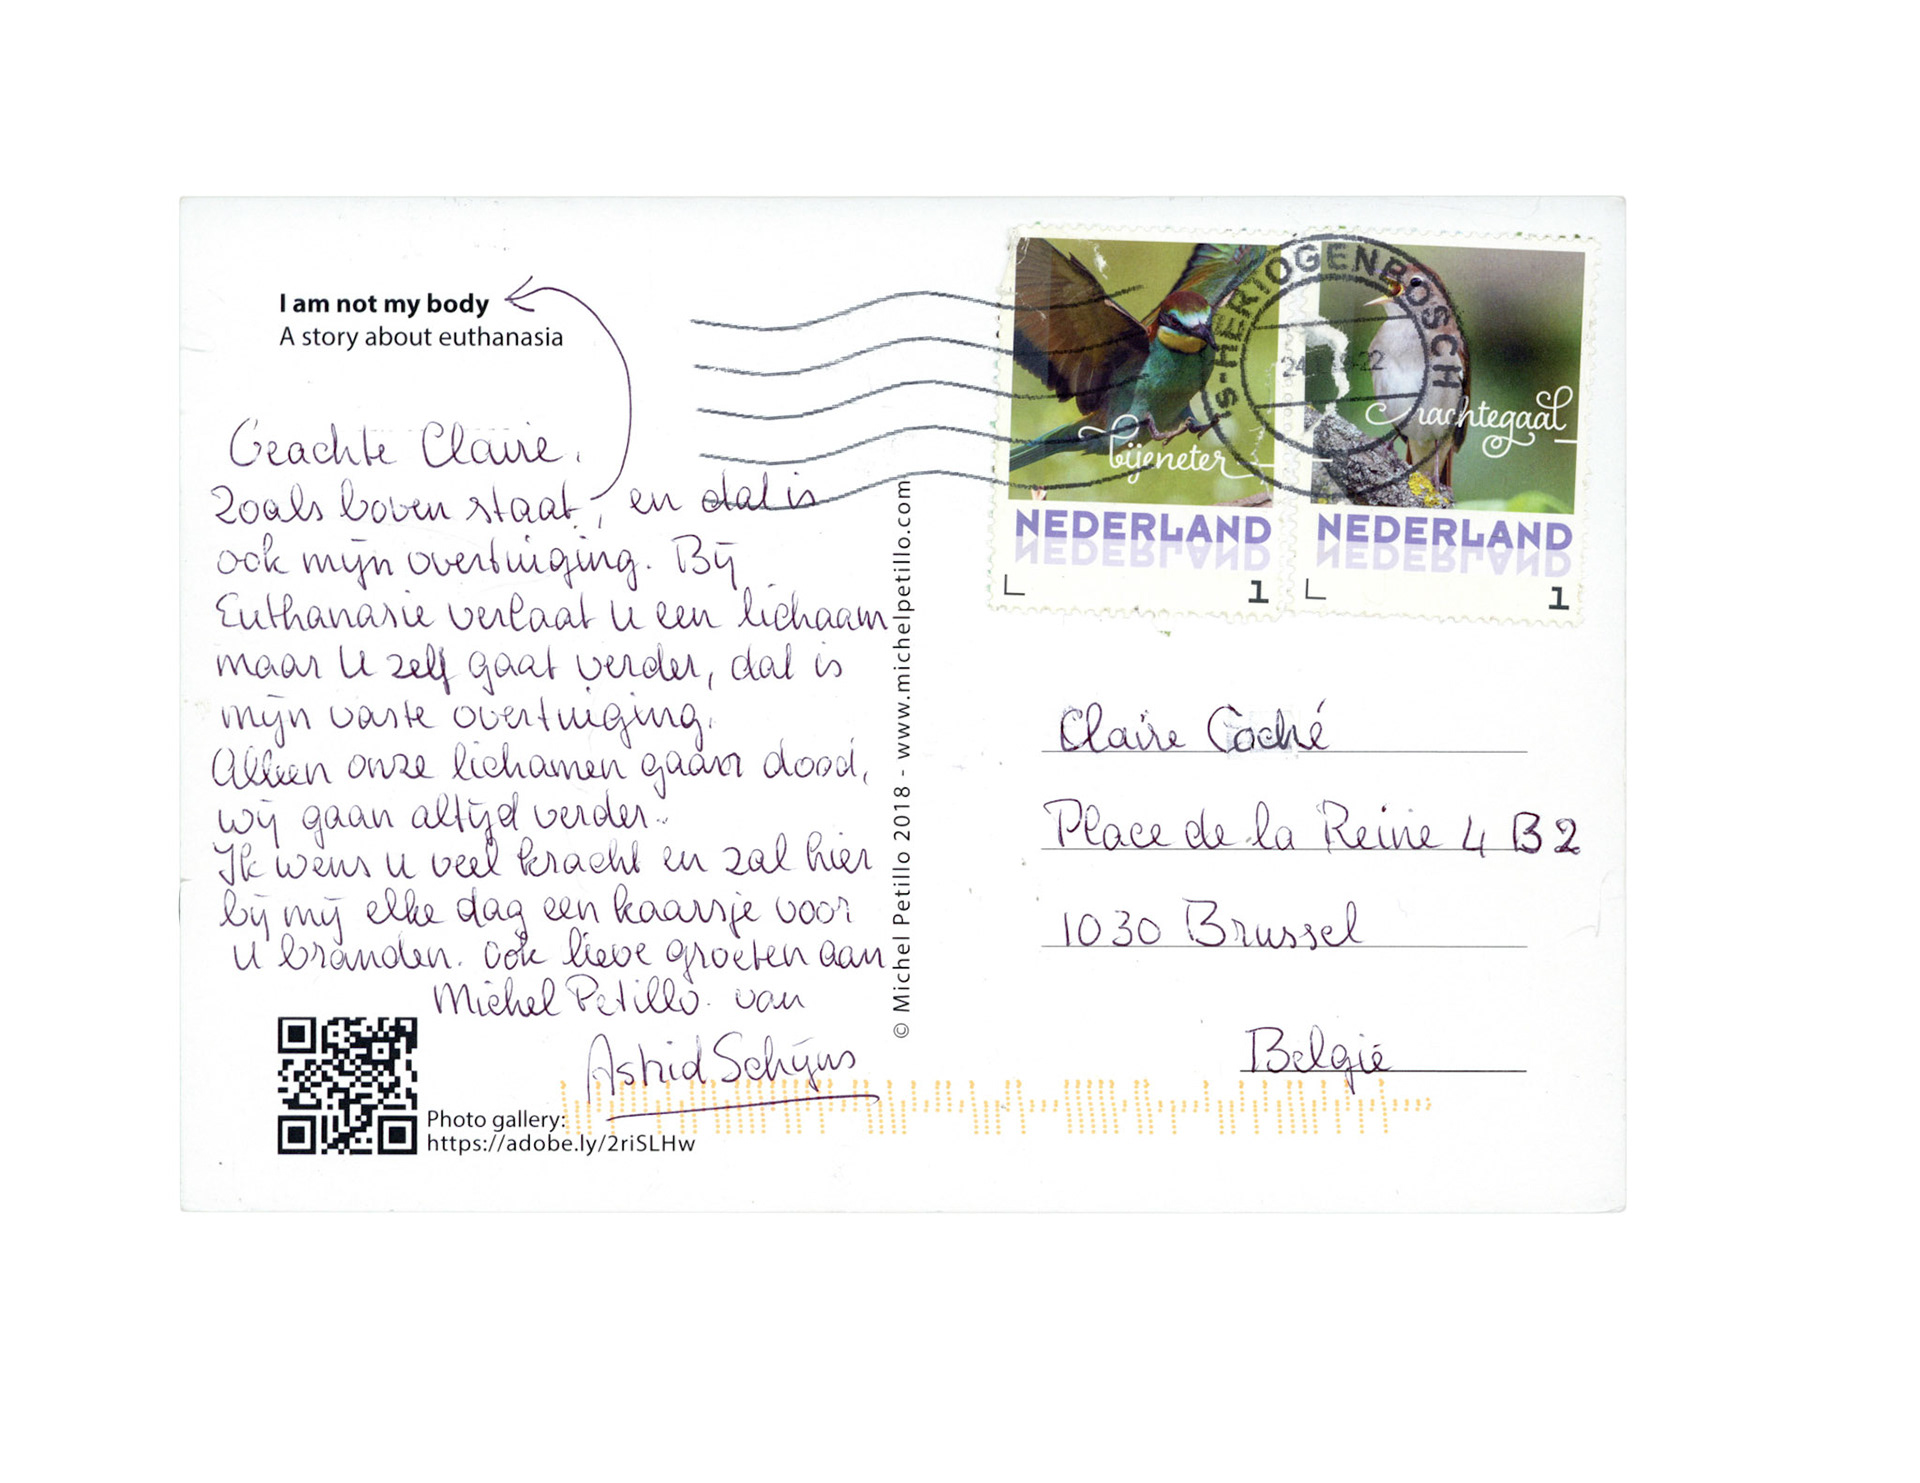 I am not my body
A story about euthanasia
Geachte Claire,
Zoals boven staat, en dat is
ook mijn overtuiging. Bij
Euthanasie verlaat U een lichaam
maar U zelf gaat verder, dat is
mijn vaste overtuiging.
Alleen onze lichamen gaan dood,
wij gaan altijd verder.
Ik wens u veel kracht en zal hier
bij mij elke dag een kaarsje voor
u branden. Ook lieve groeten aan
Michel Petillo. van
Astrid Schijns
Photo gallery:
https://adobe.ly/2riSLHw
© Michel Petillo 2018 - www.michelpetillo.com
bijeneter
NEDERLAND
1
nachtegaal
NEDERLAND
1
'S-HERTOGENBOSCH
Claire Coché
Place de la Reine 4 B2
1030 Brussel
België